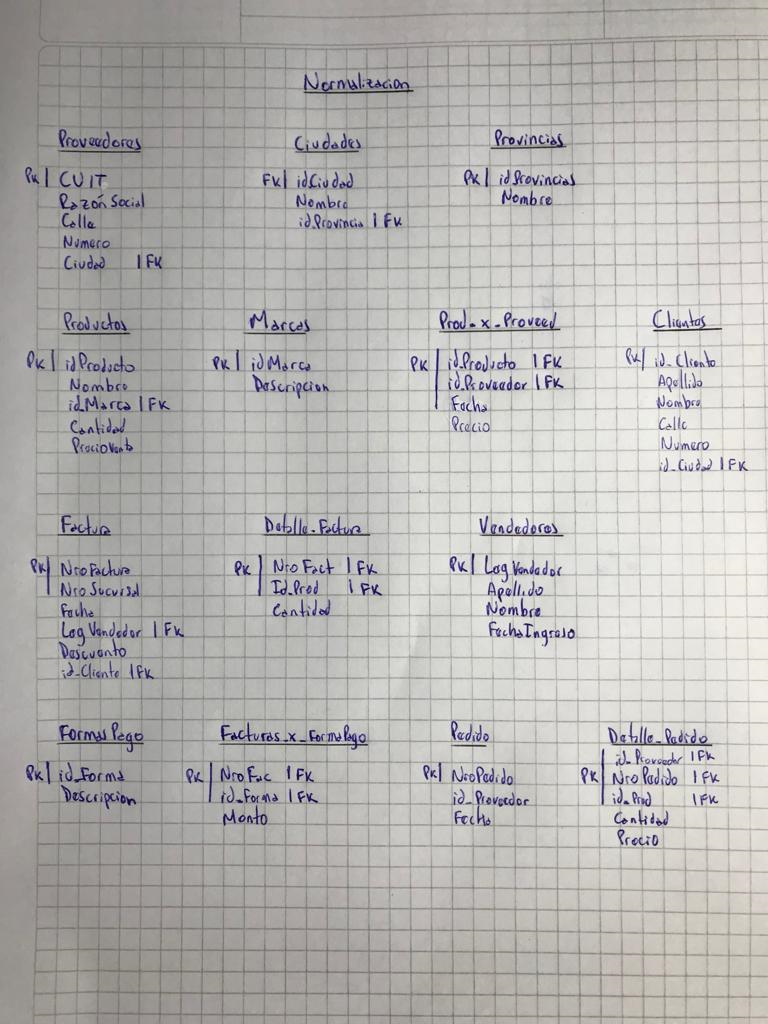 Normalizacion
Proveedores
PK | CUIT
Razón Social
Calle
Numero
Ciudad | FK
Ciudades
FK | idCiudad
Nombre
id_Provincia | FK
Provincias
PK | idProvincias
Nombre
Productos
PK | idProducto
Nombre
id_Marca | FK
Cantidad
PrecioVenta
Marcas
PK | idMarca
Descripcion
Prod_x_Proveed
PK | id_Producto | FK
id_Proveedor | FK
Fecha
Precio
Clientes
PK | id_Cliente
Apellido
Nombre
Calle
Numero
id_Ciudad | FK
Factura
PK | NroFactura
NroSucursal
Fecha
Leg Vendedor | FK
Descuento
id_Cliente | FK
Detalle_Factura
PK | Nro Fact | FK
Id_Prod | FK
Cantidad
Vendedores
PK | Leg Vendedor
Apellido
Nombre
FechaIngreso
Formas Pago
PK | id_Forma
Descripcion
Facturas_x_FormaPago
PK | Nro Fac | FK
id_Forma | FK
Monto
Pedido
PK | NroPedido
id_Proveedor
Fecha
Detalle_Pedido
id_Proveedor | FK
PK | NroPedido | FK
id_Prod | FK
Cantidad
Precio